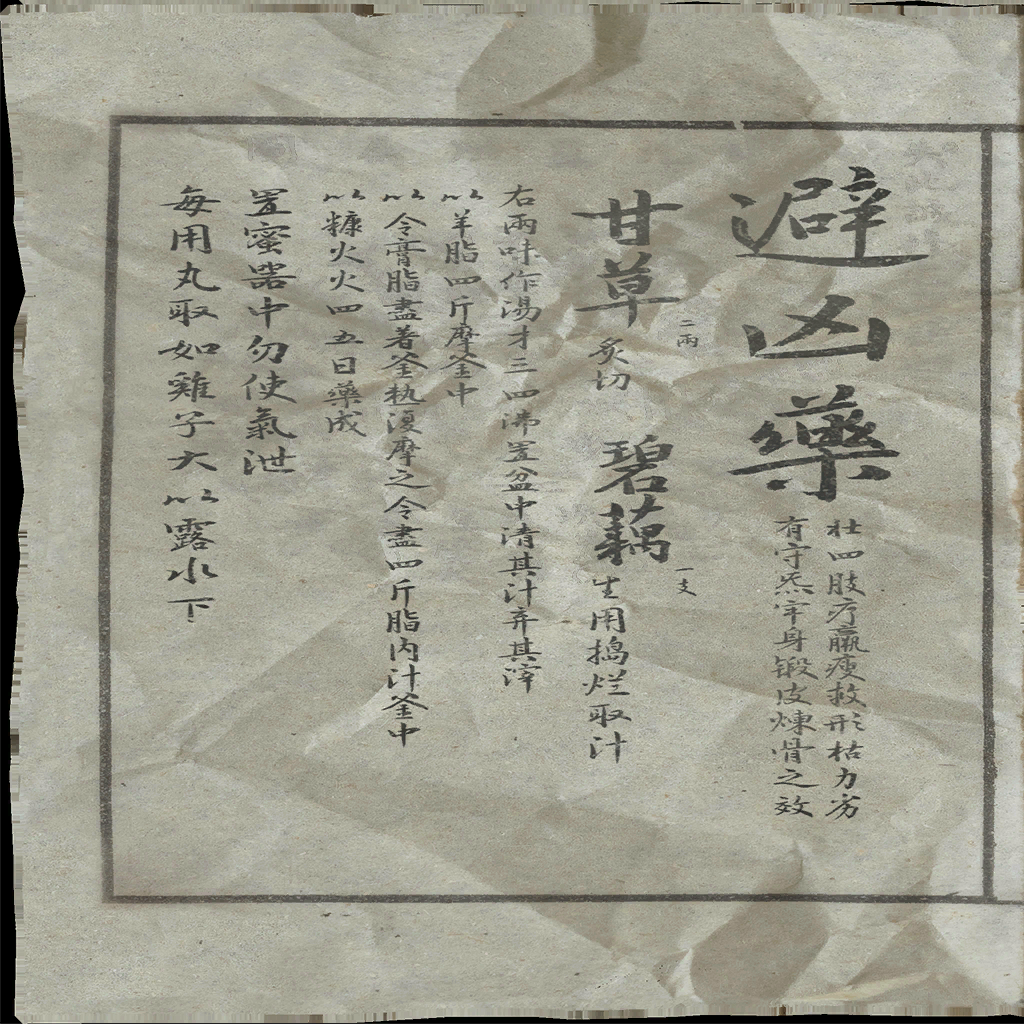 避凶藥
壯四肢疗羸瘦救形枯力劣
有守炁牢身锻皮煉骨之效
甘草
二兩
炙切
碧藕
一支
生用搗烂取汁
右兩味作湯才三四沸置盆中清其汁弃其滓
以羊脂四斤摩釜中
以令膏脂盡著釜热復摩之令盡四斤脂内汁釜中
以糠火火四五日藥成
置蜜器中勿使氣泄
每用丸取如雞子大以露水下